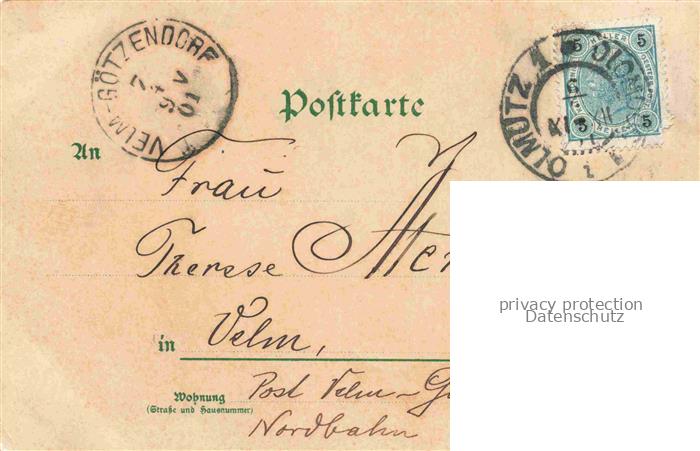 VELM-GÖTZENDORF
Postkarte
OLMÜTZ 1
5 HELLER 5
5 5
An
Frau
Therese
in Velm,
Wohnung
(Straße und Hausnummer)
Post Velm-
Nordbahn
privacy protection
Datenschutz